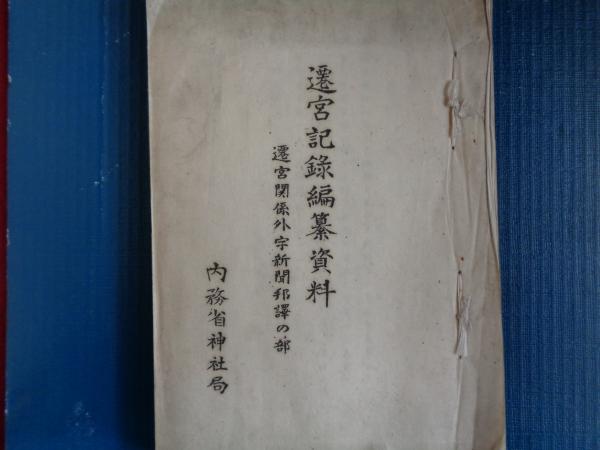 遷宮記錄編纂資料
遷宮関係外字新聞邦譯の部
内務省神社局